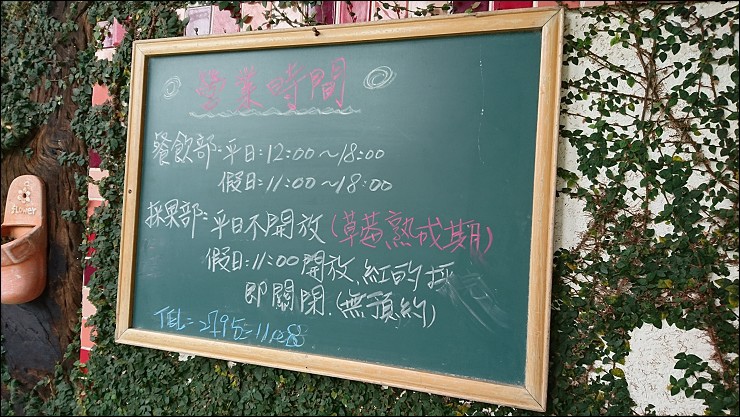 營業時間
餐飲部:平日:12:00~18:00
假日:11:00~18:00
採果部:平日不開放(草莓熟成期)
假日:11:00開放.紅的採
即關閉.(無預約)
TEL:2795-11
flower